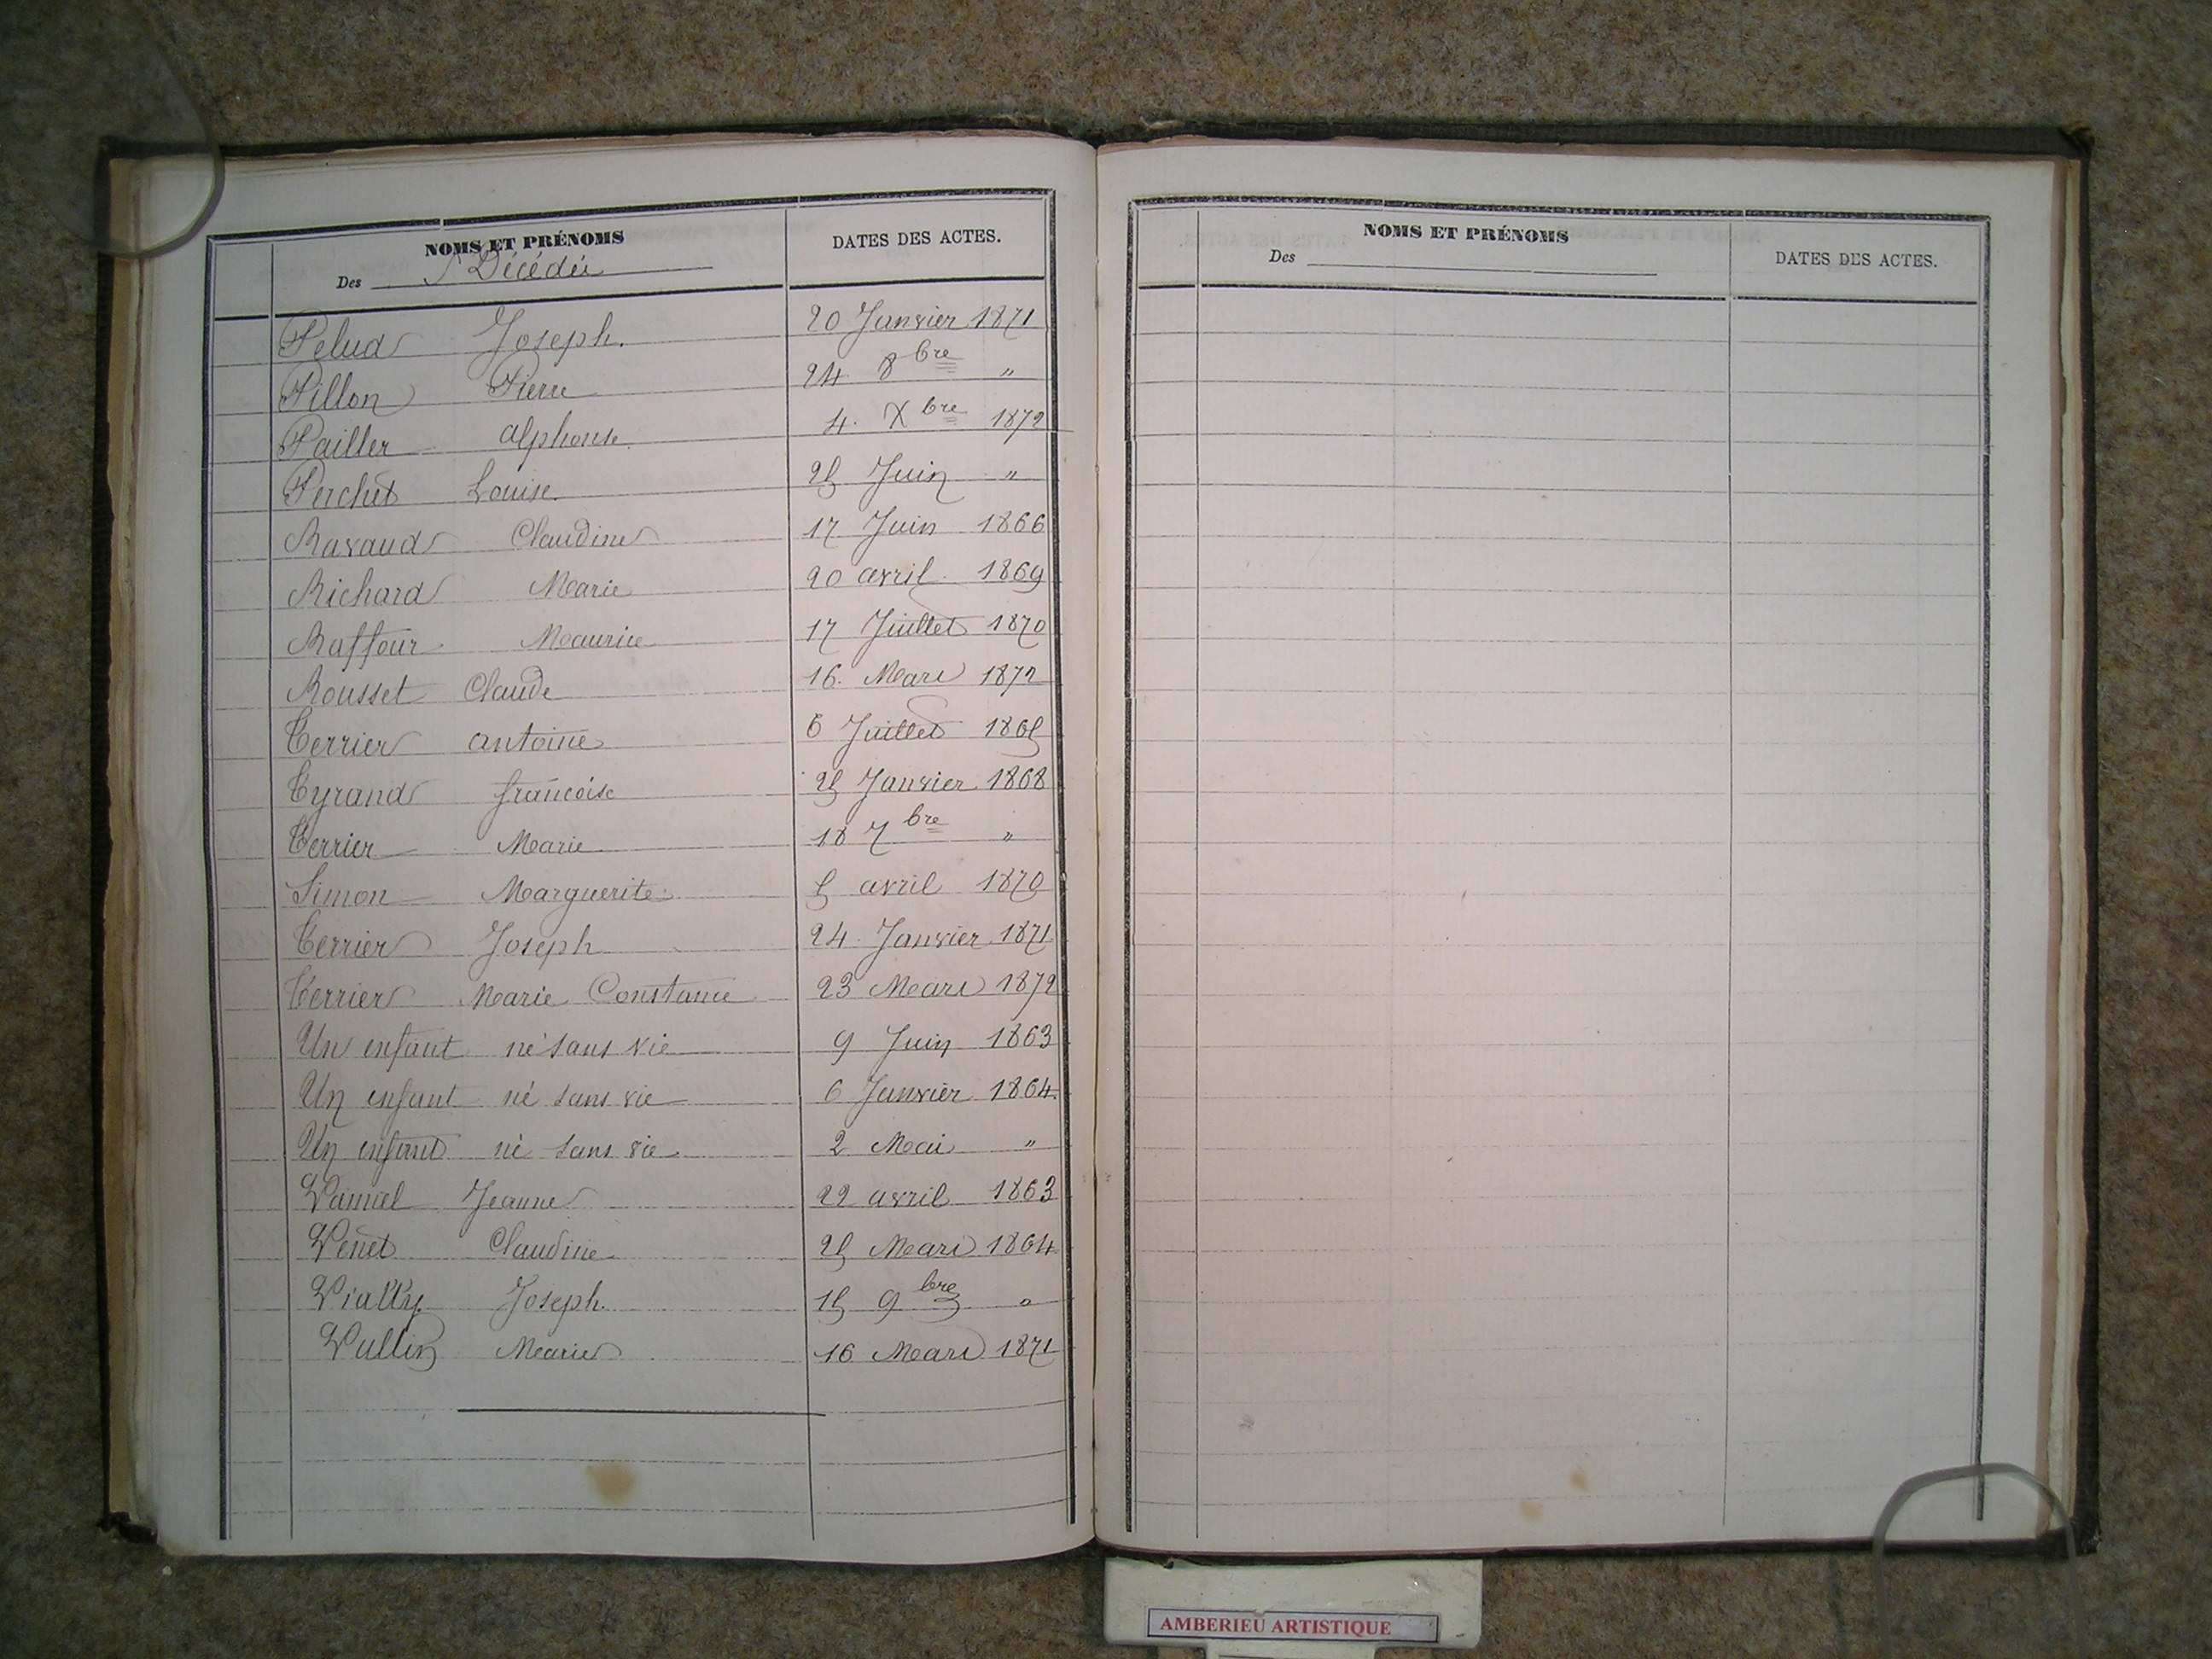 NOMS ET PRÉNOMS
Des Décédés
DATES DES ACTES.
Pelud Joseph. 20 Janvier 1871
Pillon Pierre 24 8bre "
Pailler alphonse 4. Xbre 1872
Perchet Louise 25 Juin "
Ravaud Claudine 17 Juin 1866
Richard Marie 20 avril 1869
Raffour Maurice 17 Juillet 1870
Rousset Claude 16. Mars 1872
Terrier antoine 6 Juillet 1865
Tyrand françoise 25 Janvier 1868
Terrier Marie 18 7bre "
Simon Marguerite 5 avril 1870
Terrier Joseph 24 Janvier 1871
Terrier Marie Constance 23 Mars 1872
Un enfant né sans vie 9 Juin 1863
Un enfant né sans vie 6 Janvier 1864
Un enfant né sans vie 2 Mai "
Jeanne 22 avril 1863
Venet Claudine 25 Mars 1864
Vially Joseph. 15 9bre "
Vullin Marie 16 Mars 1871
NOMS ET PRÉNOMS
Des
DATES DES ACTES.
AMBERIEU ARTISTIQUE